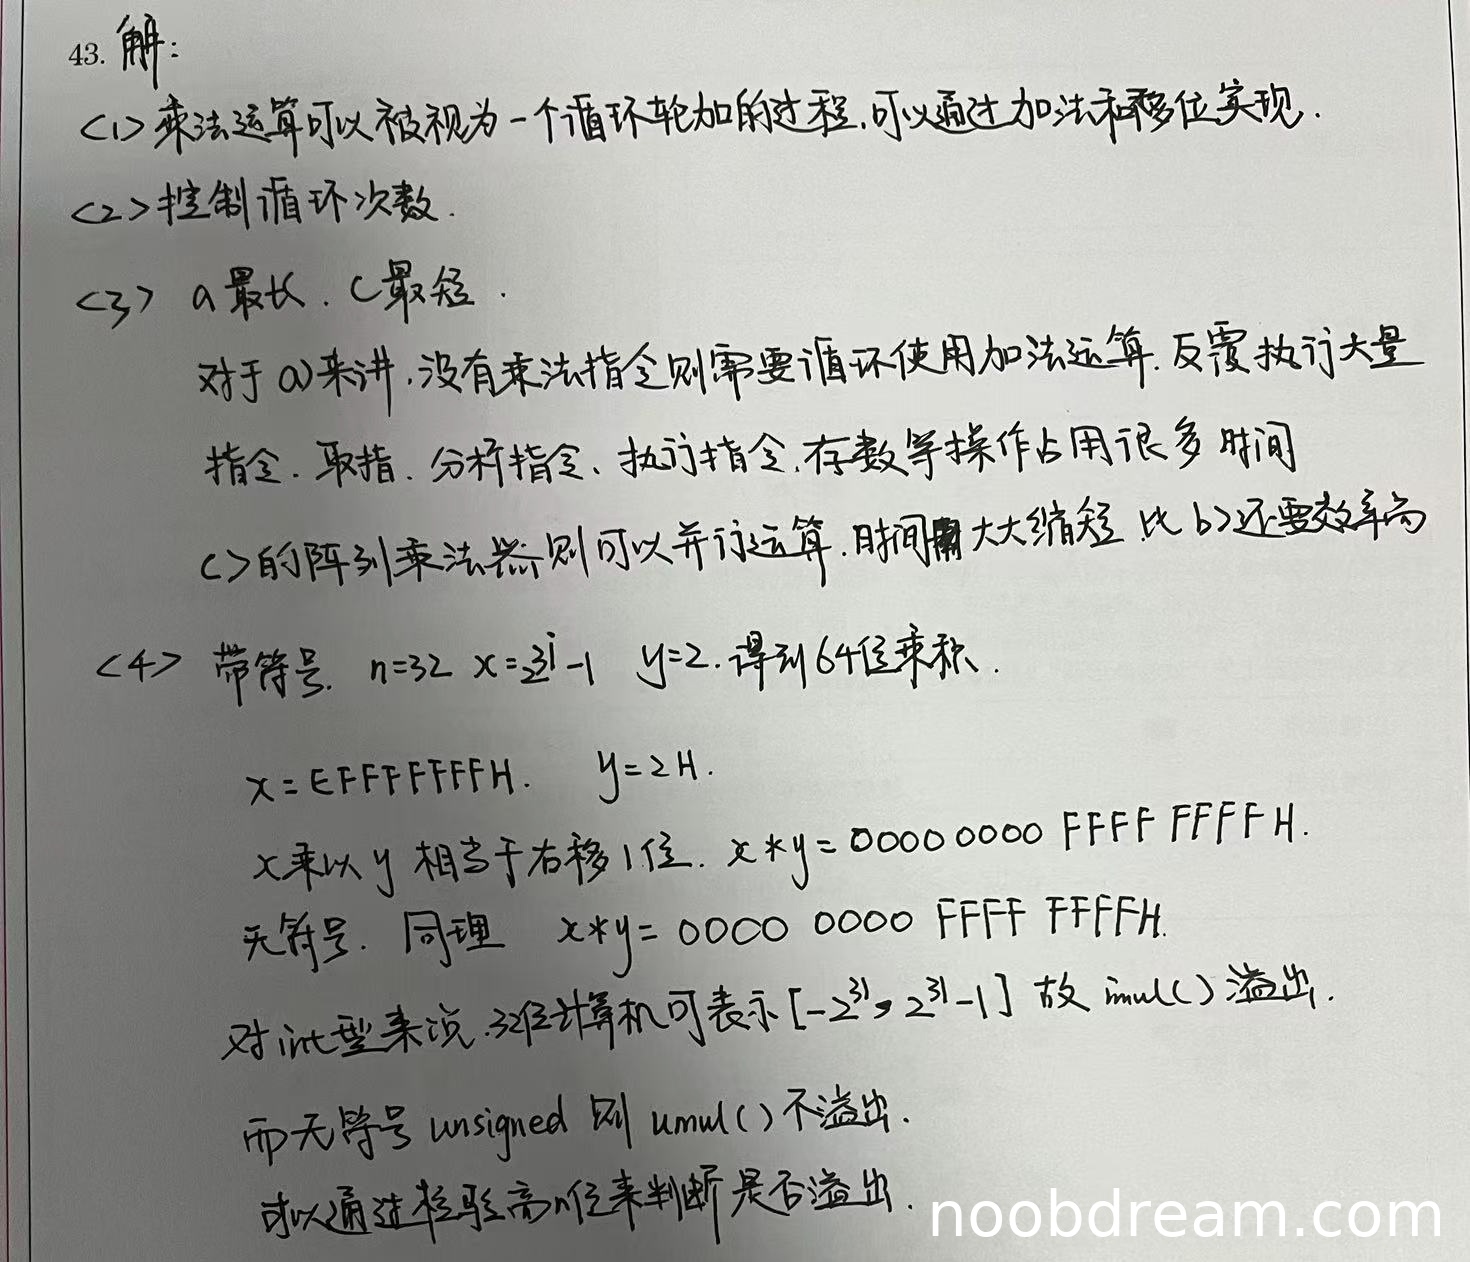 43. 解:
<1>乘法运算可以被视为一个循环轮加的过程,可以通过加法和移位实现.
<2>控制循环次数.
<3> a最长. C最短.
对于a)来讲,没有乘法指令则需要循环使用加法运算.反覆执行大量
指令.取指.分析指令、执行指令.存数等操作占用很多时间
c>的阵列乘法器则可以并行运算.时间大大缩短.比b>还要效率高
<4> 带符号. n=32 x=2^31-1 y=2.得到64位乘积.
x=EFFFFFFFH. y=2H.
x乘以y相当于右移1位. x*y=0000 0000 FFFF FFFF H.
无符号.同理 x*y=0000 0000 FFFF FFFFH.
对int型来说.32位计算机可表示[-2^31, 2^31-1] 故imul()溢出.
而无符号unsigned则umul()不溢出.
可以通过检验高n位来判断是否溢出.
noobdream.com